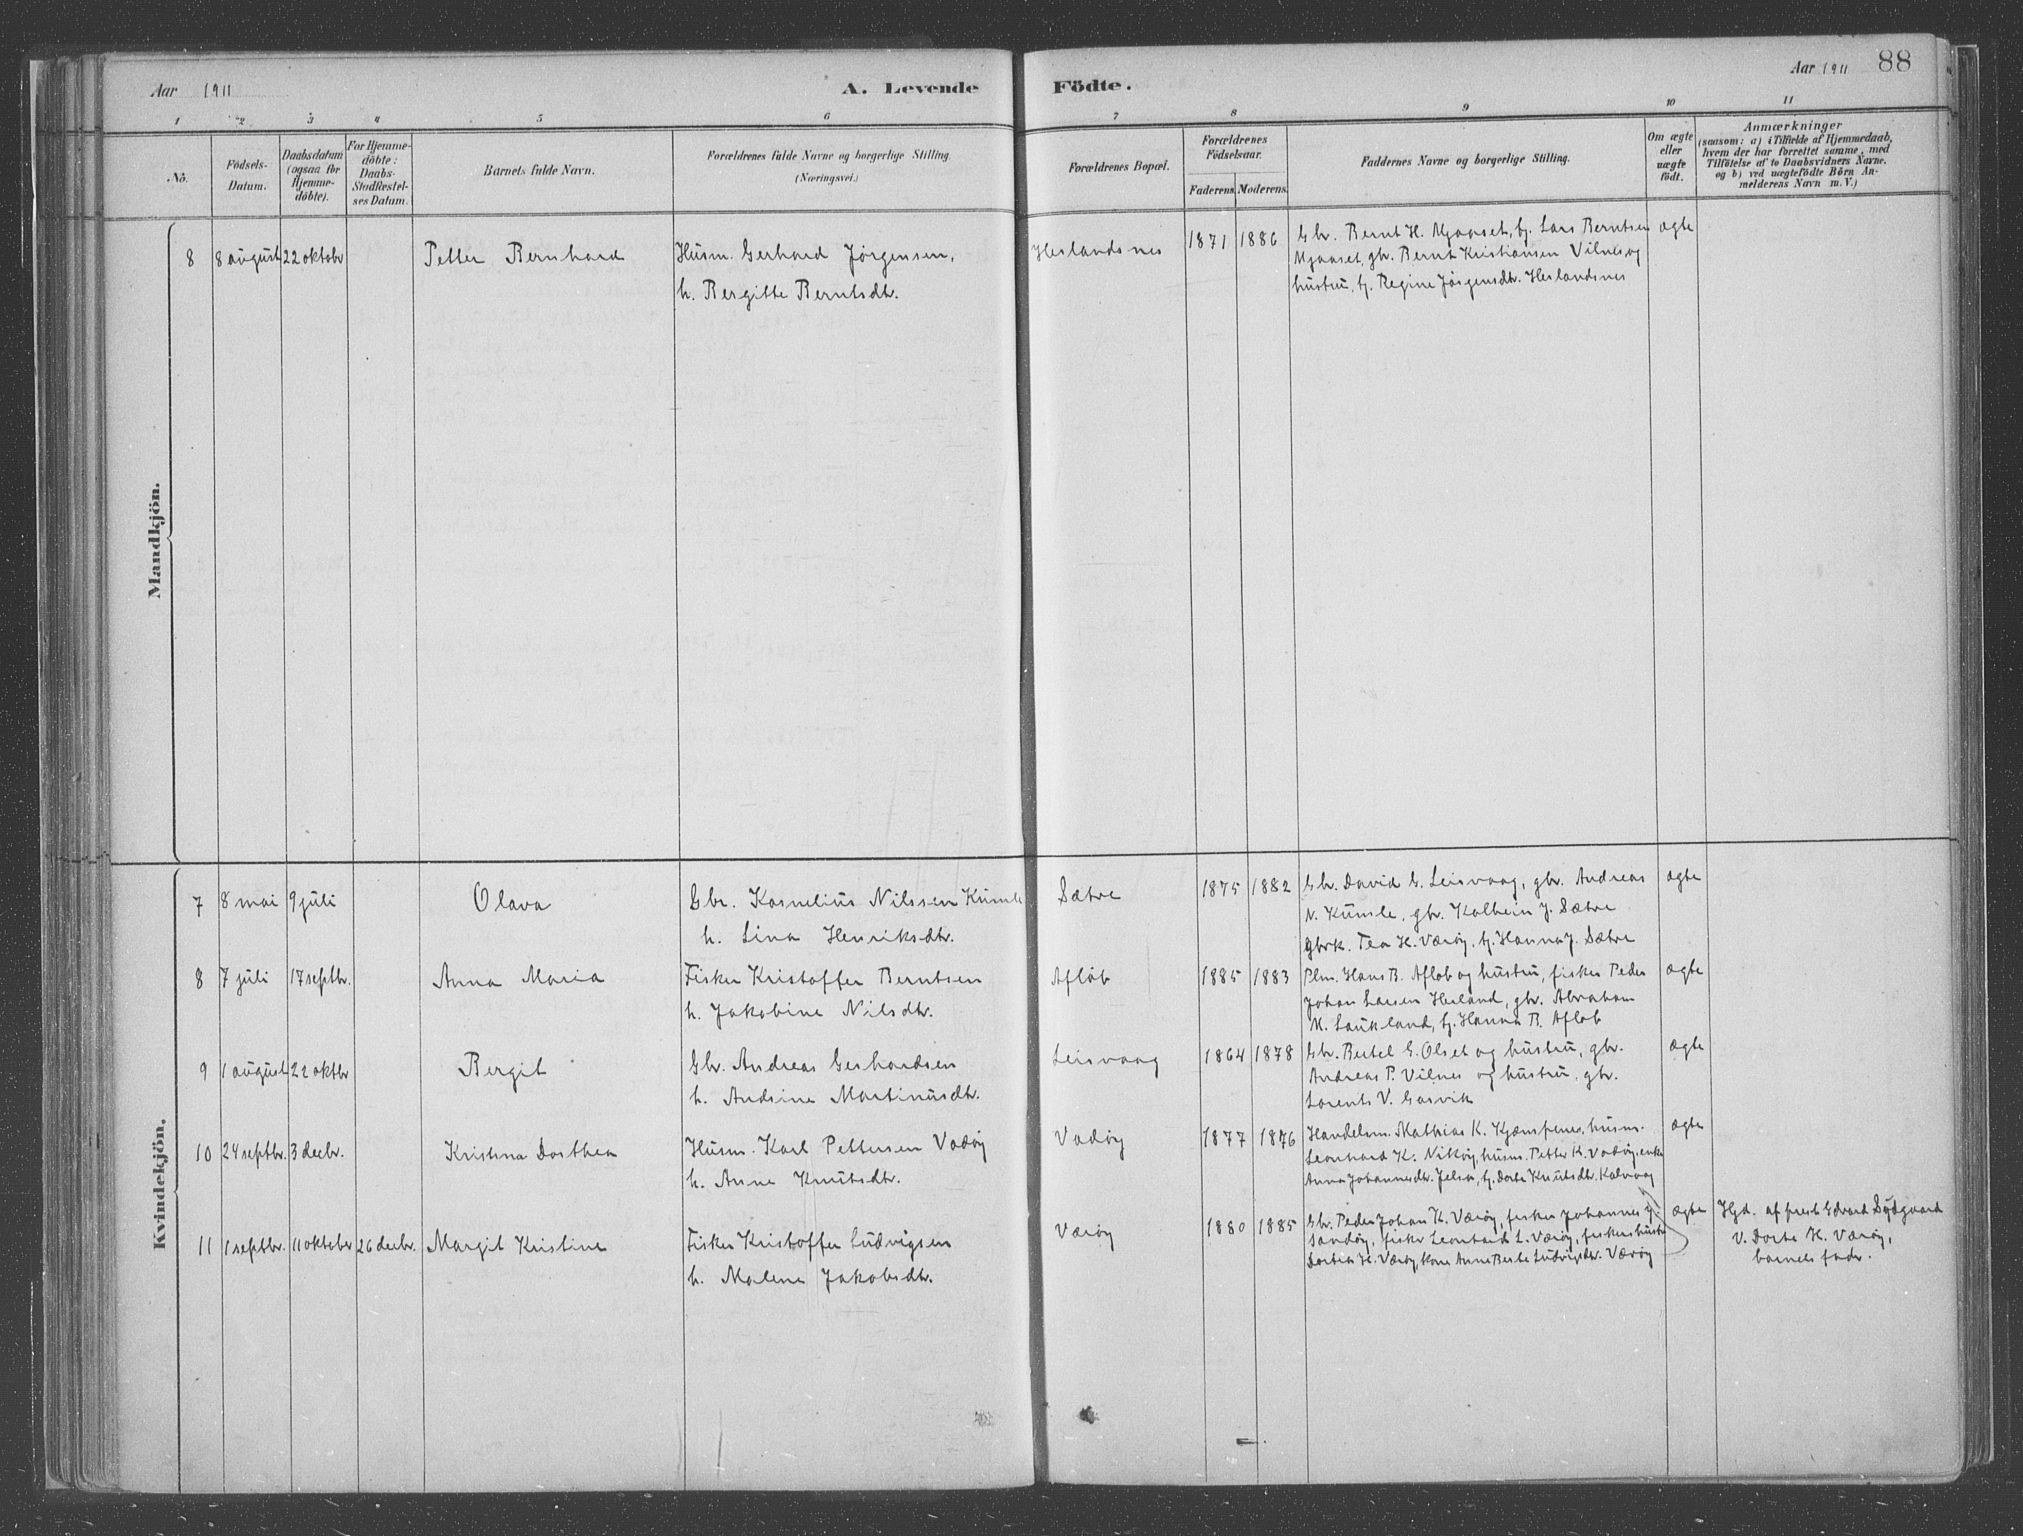 Aar 1911
A. Levende Födte.
Aar 1911 88
1 2 3 4 5 6 7 8 9 10 11
No.
Födsels-Datum.
Daabsdatum (ogsaa for Hjemme-döbte).
For Hjemme-döbte: Daabs-Stadfæstel-ses Datum.
Barnets fulde Navn.
Forældrenes fulde Navne og borgerlige Stilling.
(Næringsvei.)
Forældrenes Bopæl.
Forældrenes Födselsaar.
Faderens. Moderens.
Faddernes Navne og borgerlige Stilling.
Om ægte eller uægte födt.
Anmærkninger
(saasom: a) i Tilfælde af Hjemmedaab,
hvem der har forrettet samme, med
Tilföielse af to Daabsvidners Navne.
og b) ved uægtefödte Börn An-
melderens Navn m. V.)
Mandkjön.
8 8 august 22 oktobr Petter Bernhard Husm. Gerhard Jørgensen, Heslandsnes 1871 1886 Gbr. Bernt H. Mjaaset, tj. Lars Berntsen ægte
Mjaaset, gbr. Bernt Kristiansen Vilnes og
h. Bergitte Berntsdtr. hustru, tj. Regine Jørgensdtr. Heslandsnes
Kvindekjön.
7 8 mai 9 juli Olava Gbr. Kornelius Nilssen Kumle Sætre 1875 1882 Gbr. David G. Leisvaag, gbr. Andreas ægte
N. Kumle, gbr. Kolbein J. Sætre
h. Lina Henriksdtr. gbrk. Tea H. Værøy, tj. Hanna J. Sætre
8 7 juli 17 septbr. Anna Maria Fisker Kristoffer Berntsen Afløb 1885 1883 Plm. Hans B. Afløb og hustru, fisker Peder ægte
Johan Larsen Hesland, gbr. Abraham
h. Jakobine Nilsdtr. M. Laukland, tj. Hanna B. Afløb
9 1 august 22 oktbr Bergit Gbr. Andreas Gerhardsen Leisvaag 1864 1878 Gbr. Bertel G. Olset og hustru, gbr. ægte
Andreas P. Vilnes og hustru, gbr.
h. Andrine Martinusdtr. Lorents V. Gasvik
10 24 septbr. 3 decbr. Kristina Dorthea Husm. Karl Pettersen Vadøy Vadøy 1877 1876 Handelsm. Mathias K. Kjempenes, husm. ægte
Leonhard K. Nikøy, husm. Petter K. Vadøy, enke
h. Anne Knutsdtr. Anna Johannesdtr. Jelsa, tj. Dorte Knutsdtr. Kalvaag
11 1 septbr. 11 oktober 26 decbr. Margit Kristine Fisker Kristoffer Ludvigsen Værøy 1880 1885 Gbr. Peder Johan H. Værøy, fisker Johannes J. ægte Hjd. af prest Edvard Sydgaard
Sandøy, fisker Leonhard L. Værøy, fiskers hustru V. Dorte H. Værøy,
h. Malene Jakobsdtr. Dortea H. Værøy, kone Anne Berte Ludvigsdtr. Værøy barnets fader.